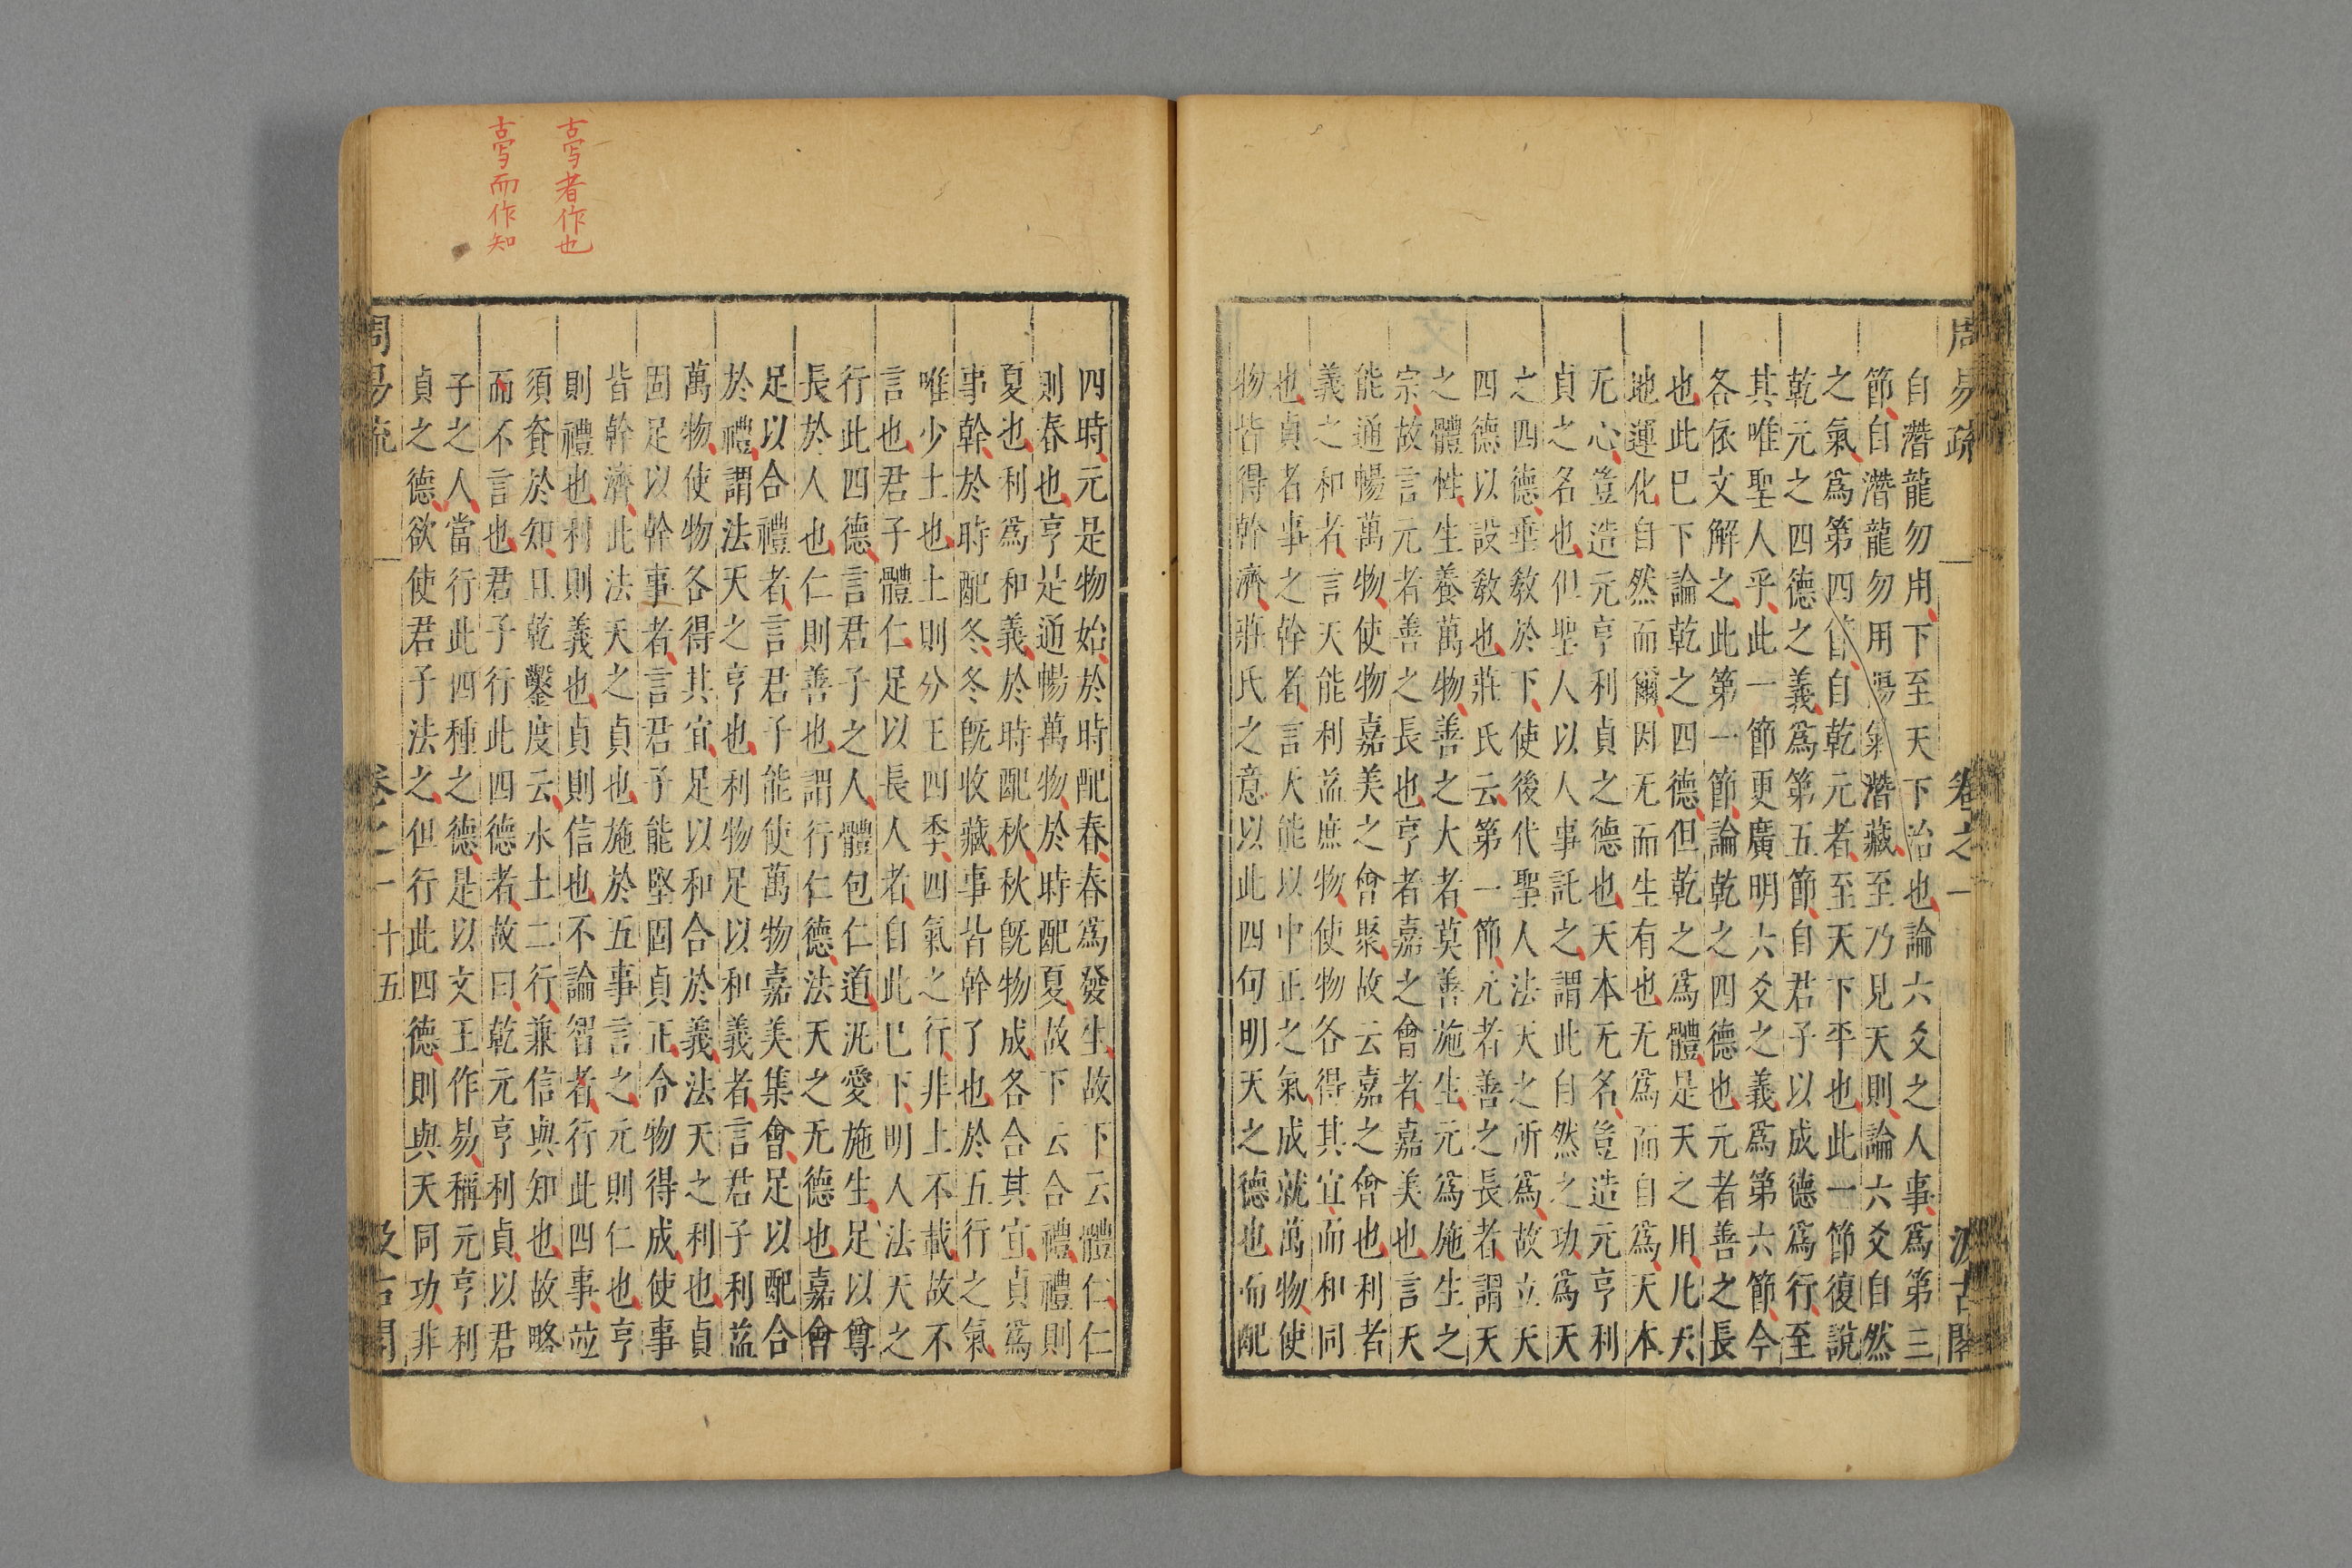 周易疏 卷之一 汲古閣
自潛龍勿用下至天下治也論六爻之人事爲第三
節自潛龍勿用陽氣潛藏至乃見天則論六爻自然
之氣爲第四節自乾元者至天下平也此一節復說
乾元之四德之義爲第五節自君子以成德爲行至
其唯聖人乎此一節更廣明六爻之義爲第六節今
各依文解之此第一節論乾之四德也元者善之長
也此巳下論乾之四德但乾之爲體是天之用凡天
地運化自然而爾因无而生有也无爲而自爲天本
无心豈造元亨利貞之德也天本无名豈造元亨利
貞之名也但聖人以人事託之謂此自然之功爲天
之四德垂敎於下使後代聖人法天之所爲故立天
四德以設敎也莊氏云第一節元者善之長者謂天
之體性生養萬物善之大者莫善施生元爲施生之
宗故言元者善之長也亨者嘉之會者嘉美也言天
能通暢萬物使物嘉美之會聚故云嘉之會也利者
義之和者言天能利益庶物使物各得其宜而和同
也貞者事之幹者言天能以中正之氣成就萬物使
物皆得幹濟莊氏之意以此四句明天之德也而配
四時元是物始於時配春春爲發生故下云體仁仁
則春也亨是通暢萬物於時配夏故下云合禮禮則
夏也利爲和義於時配秋秋旣物成各合其宜貞爲
事幹於時配冬冬旣收藏事皆幹了也於五行之氣
唯少土也土則分王四季四氣之行非土不載故不
言也君子體仁足以長人者自此巳下明人法天之
行此四德言君子之人體包仁道汎愛施生足以尊
長於人也仁則善也謂行仁德法天之无德也嘉會
足以合禮者言君子能使萬物嘉美集會足以配合
於禮謂法天之亨也利物足以和義者言君子利益
萬物使物各得其宜足以和合於義法天之利也貞
固足以幹事者言君子能堅固貞正令物得成使事
皆幹濟此法天之貞也施於五事言之元則仁也亨
則禮也利則義也貞則信也不論智者行此四事竝
須資於知且乾鑿度云水土二行兼信與知也故略
而不言也君子行此四德者故曰乾元亨利貞以君
子之人當行此四種之德是以文王作易稱元亨利
貞之德欲使君子法之但行此四德則與天同功非
周易疏 卷之一 十五 汲古閣
古寫者作也
古寫而作知